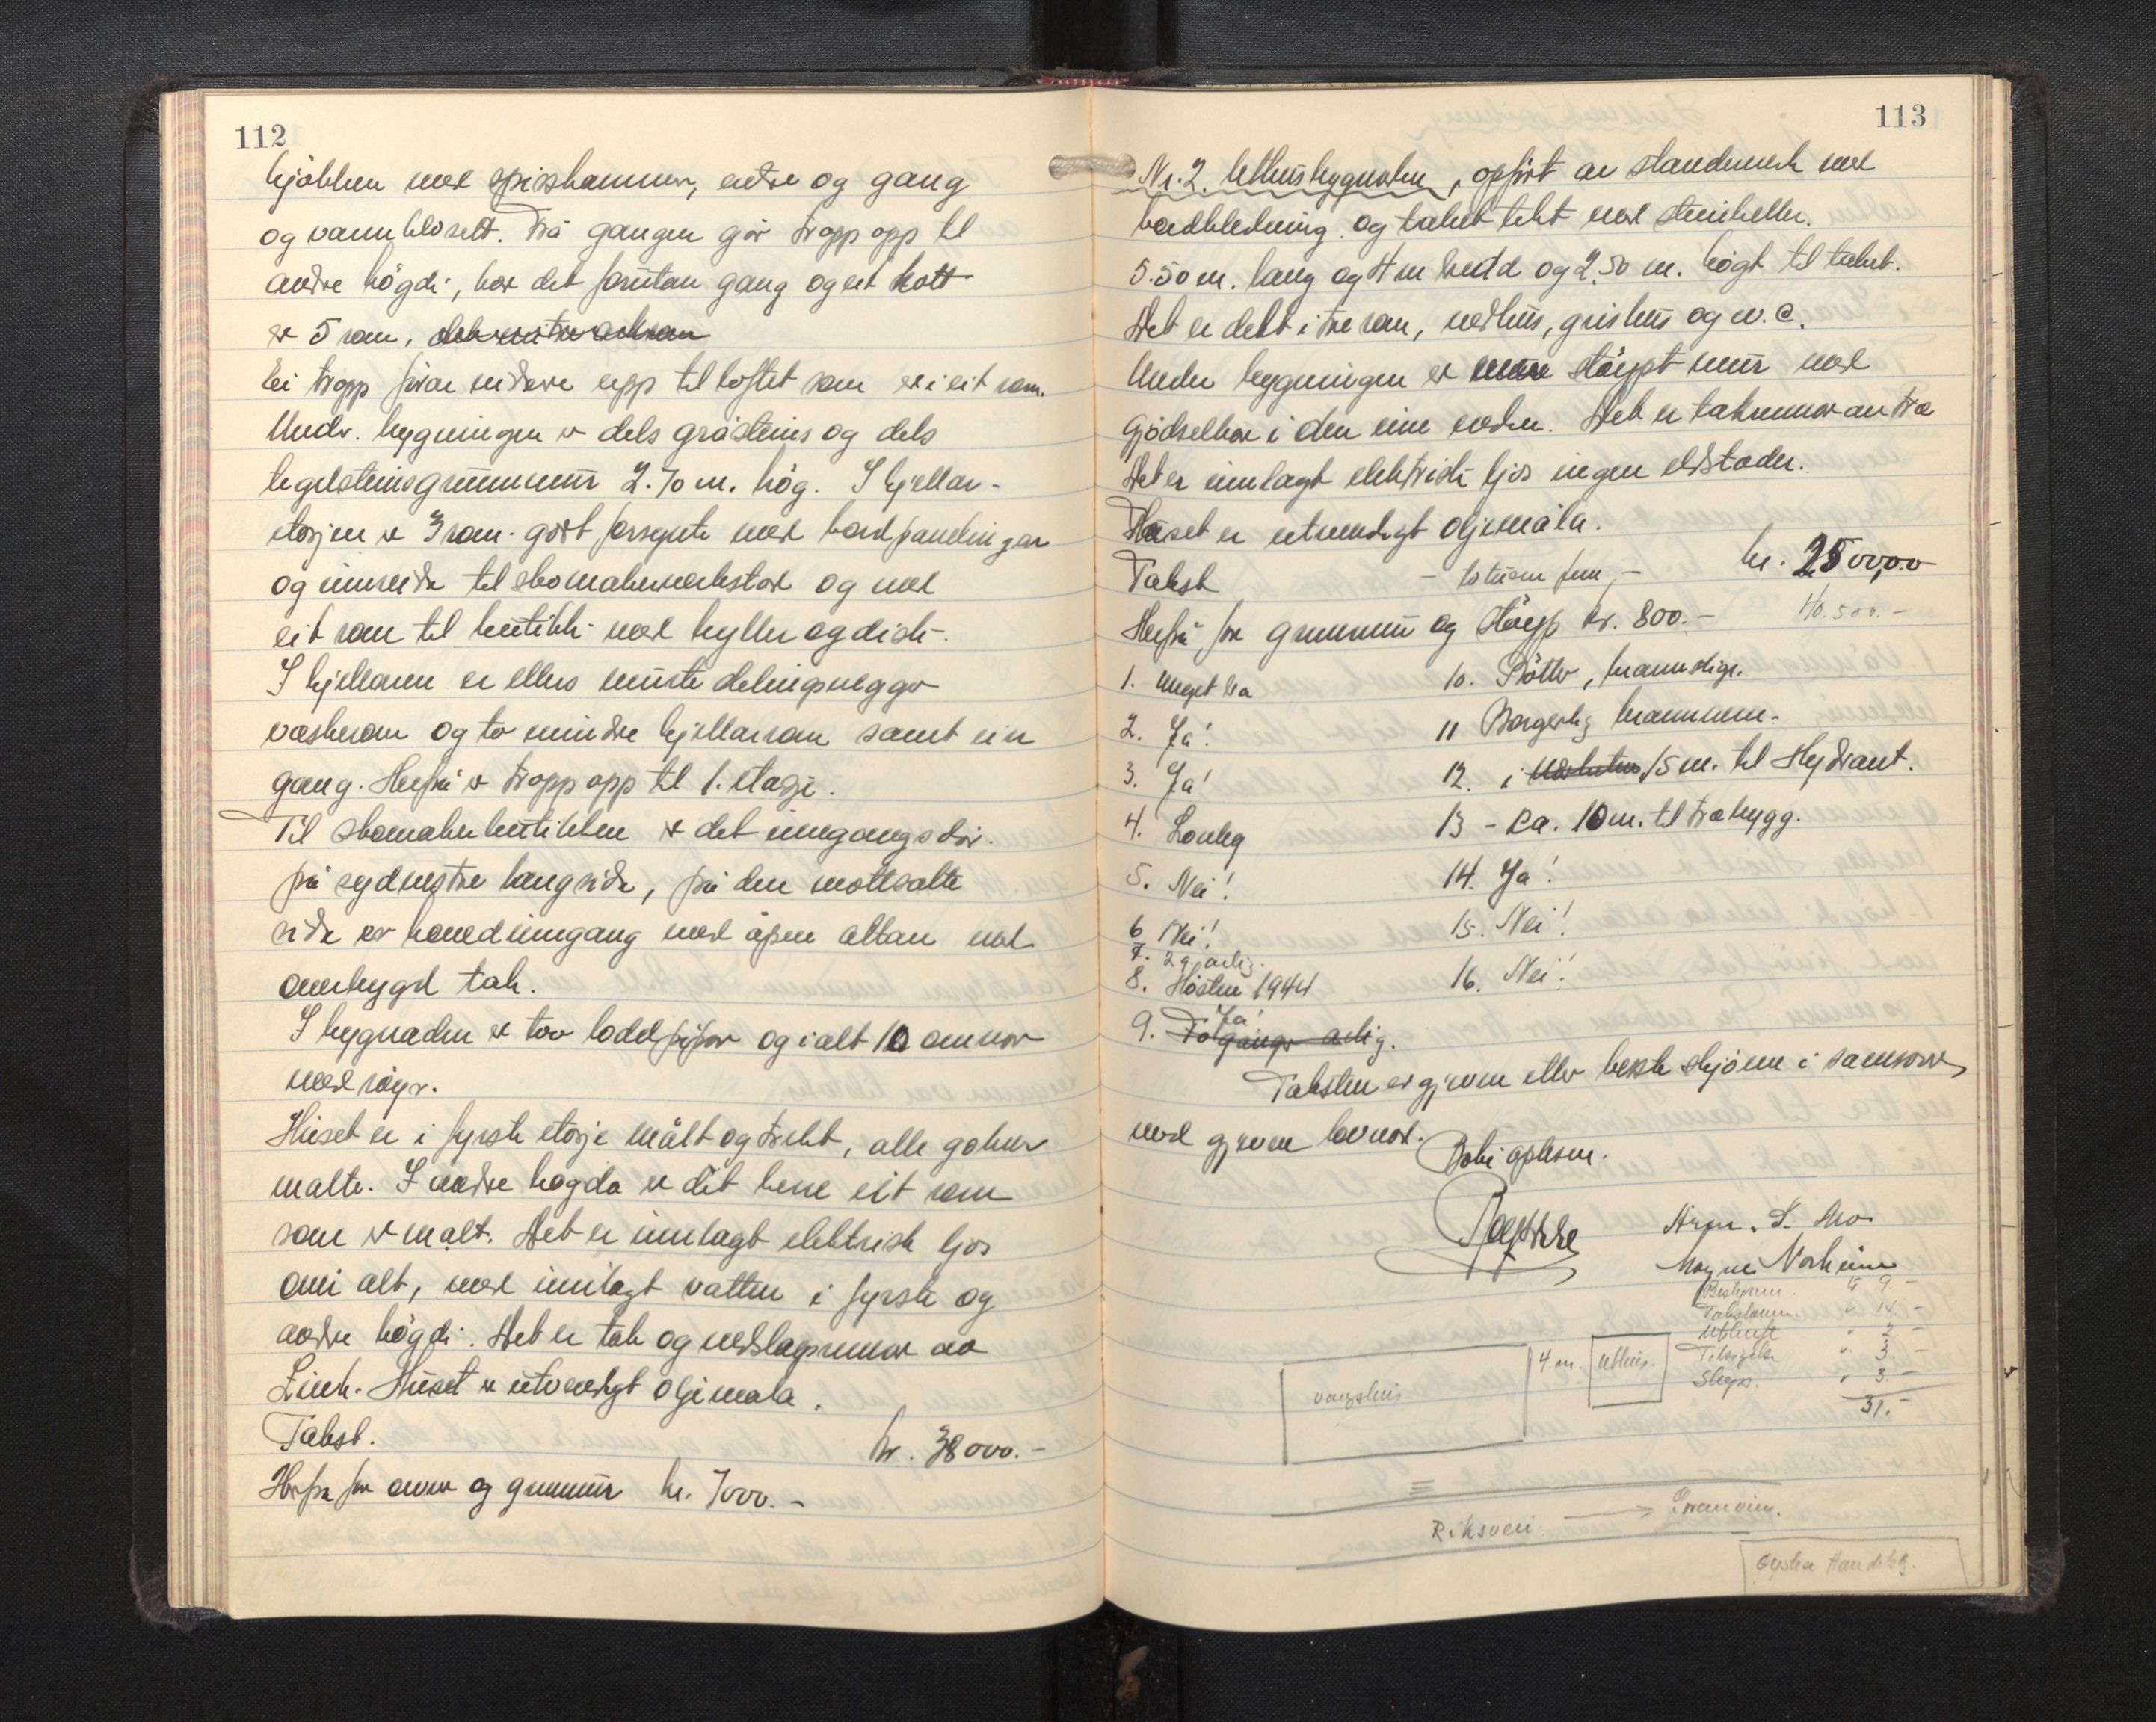 112
kjökken med spiskammer, entre og gang
og vannklosett. Frå gangen går tropp opp til
andre högdi, her det forutan gang og eit kott
er 5 rom,
Ei tropp förar vidare upp til loftet som er i eit rom.
Under bygningen er dels gråsteins og dels
teglsteinsgrunnmur 2.70 m. hög. I kjellar-
etasjen er 3 rom godt forsynte med bordpanelingar
og innreide til skomakarverkstad og med
eit rom til butikk med hyller og disk.
I kjellaren er ellers murte delingsveggar
vaskerom og to mindre kjellarrom samt ein
gang. Herfrå er tropp opp til 1. etasje.
Til skomakerbutikken er det inngangsdör
på sydvestre langside, på den mottsatte
side er hovedinngang med åpen altan med
overbygd tak.
I bygnaden er tvo loddpipor og i alt 10 omnar
med röyr.
Huset er i fyrste etasje målt og trekt, alle golver
malte. I andre högda er det bere eit rom
som er malt. Det er innlagt elektrisk ljos
ovi alt, med innlagt vatten i fyrste og
andre högdi. Det er tak og nedslagsrennor av
Zink. Huset er utvendigt oljemala.
Takst. kr. 38000.-
Herfra for omnr og grunnmur kr. 7000.-
113
Nr. 2. Uthusbygnaden, opfört av standverk med
bordkledning og taket tekt med steinheller.
5.50 m. lang og 4 m bredd og 2.50 m. högt til taket.
Det er delt i tre rom, vedhus, grishus og w.c.
Under bygningen er støypt mur med
gjödselkar i den eine enden. Det er takrennor av tre
Det er innlagt elektrisk ljos ingen eldstader.
Huset er utvendigt oljemåla.
Takst - totusen fem - kr. 2500,00
Herfrå for grunnmur og støyp kr. 800.- 40.500.-
1. Meget bra
2. Ja!
3. Ja!
4. Lovleg
5. Nei!
6 Nei!
7. 2 g. årlig.
8. Hösten 1944
9. Ja! To ganger årlig.
10. Bötter, brannstige.
11 Borgerleg brannvern.
12. i 15 m. til Hydrant.
13 - ca. 10 m. til trebygg.
14. Ja!
15. Nei!
16. Nei!
Taksten er gjeven etter beste skjönn i samsvar
med gjeven lovnad.
Boki opplesen.
Magne Norheim
Bestyrer. kr 9 -
Takstmenn. " 14. -
Utskrift " 2 -
Tilsigelse " 3. -
Skyss. " 3. -
31.-
vaagshus
4 m.
Uthus.
Riksvei → Granvin.
Øystre Handelslg.